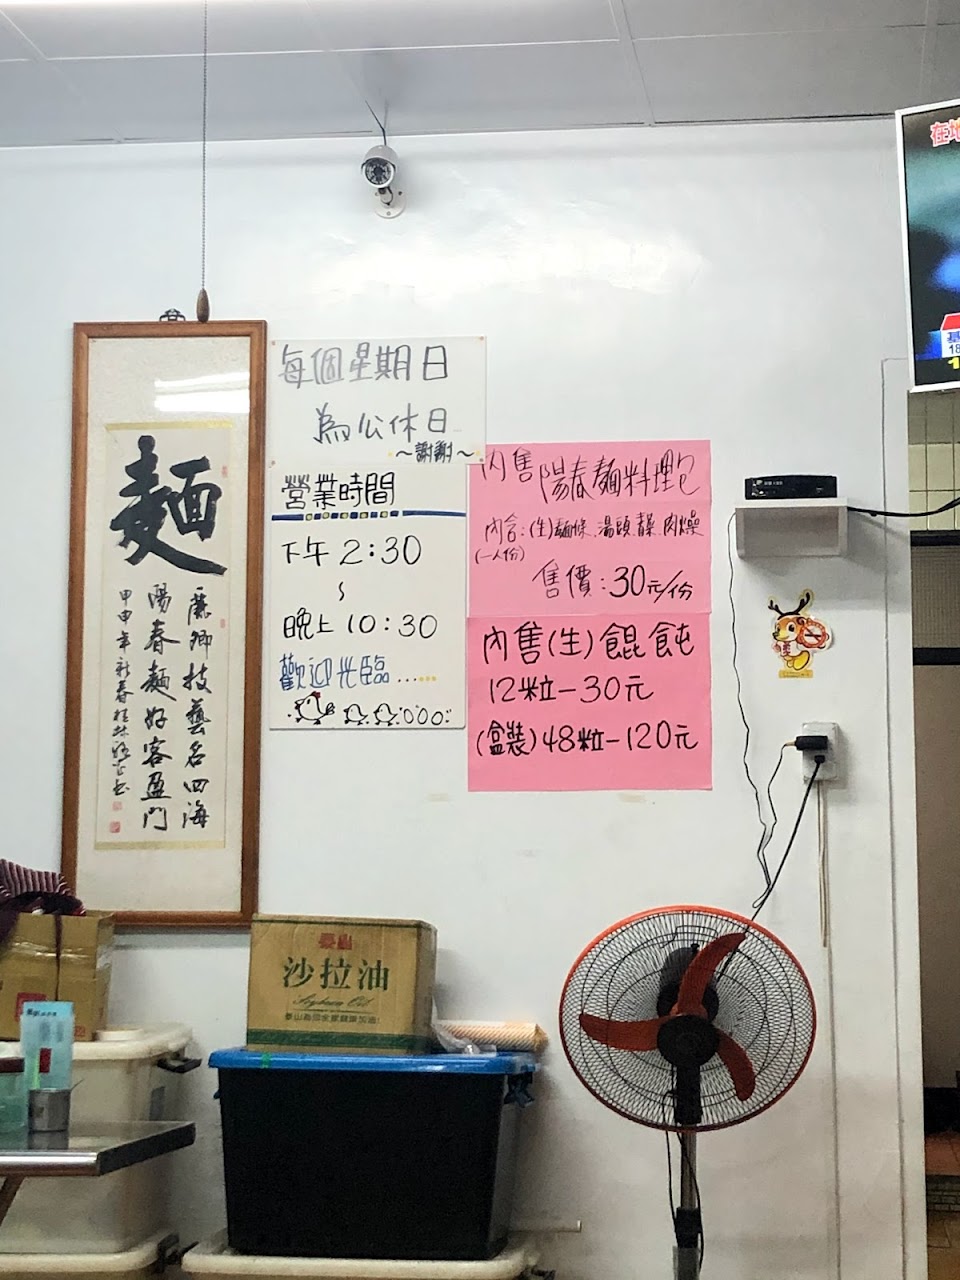 麵
麗卿技藝名四海
陽春麵好客盈門
甲申年新春桂林
每個星期日
為公休日
～謝謝～
營業時間
下午 2:30
～
晚上 10:30
歡迎光臨...
內售陽春麵料理包
內含:(生)麵條、湯頭、青菜、肉燥
(一人份)
售價:30元/份
內售(生)餛飩
12粒-30元
(盒裝)48粒-120元
在地
泰山
沙拉油
Soybean Oil
泰山為您全家健康加油!